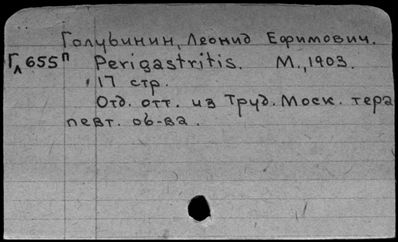 Голубинин, Леонид Ефимович.
Гл 655п Perigastritis. М., 1903.
17 стр.
Отд. отт. из Труд. Моск. тера
певт. об-ва.